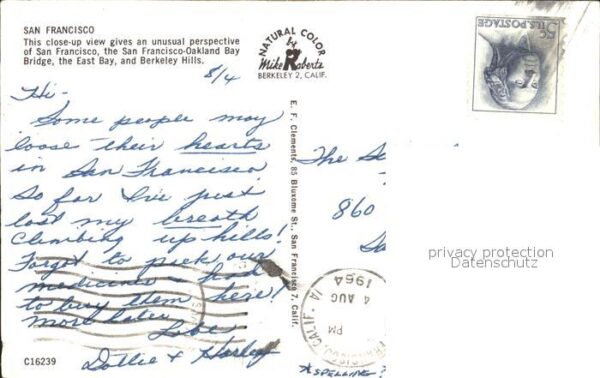 SAN FRANCISCO
This close-up view gives an unusual perspective
of San Francisco, the San Francisco-Oakland Bay
Bridge, the East Bay, and Berkeley Hills.
8/4
NATURAL COLOR
by
Mike Roberts
BERKELEY 2, CALIF.
5c
U.S. POSTAGE
Hi-
Some people may
loose their hearts
in San Francisco
So far I've just
lost my breath
Climbing up hills!
Forgot to pack our
medicines - had
to buy them here!
more later
Love
Dottie & Harley
E. F. Clements, 85 Bluxome St., San Francisco 7, Calif.
The
860
privacy protection
Datenschutz
CALIF.
PM
4 AUG
1964
*SPELLING?
C16239